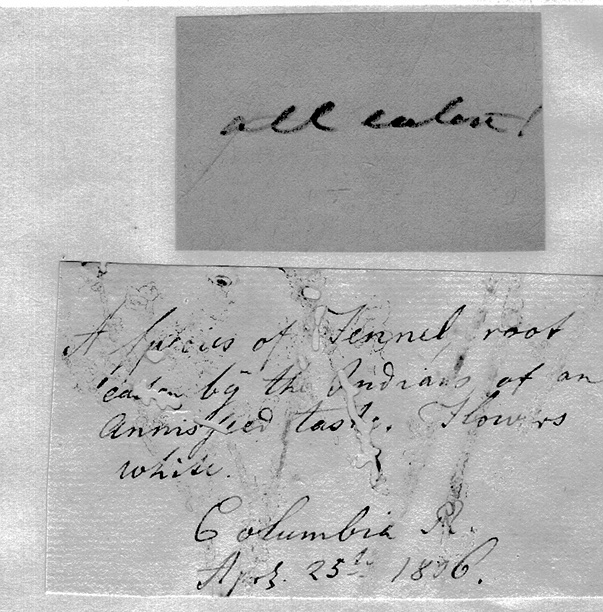 all eaten!
A species of Fennel root
eaten by the Indians of an
Annisseed taste. Flowers
white.
Columbia R.
Apr. 25th 1806.